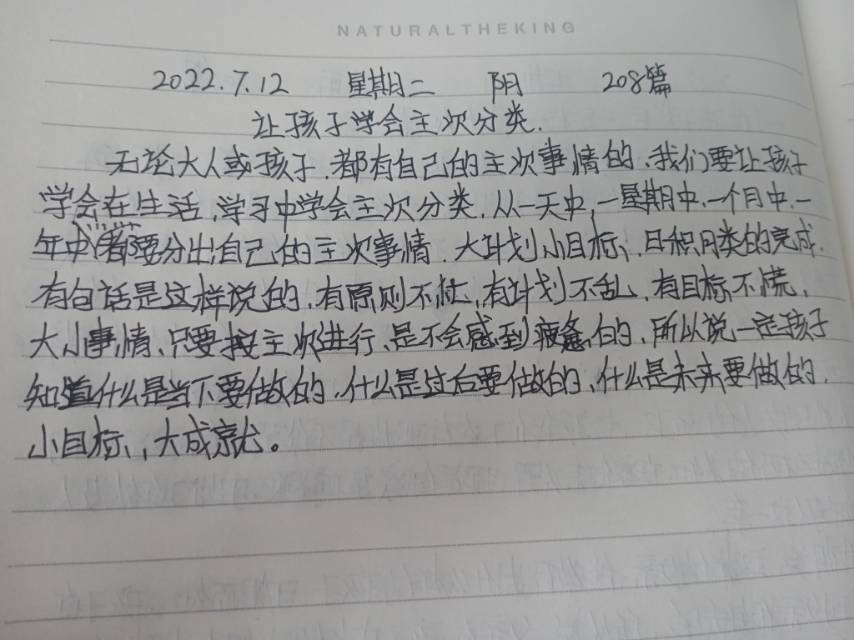 NATURALTHEKING
2022.7.12 星期二 阴 208篇
让孩子学会主次分类.
无论大人或孩子,都有自己的主次事情的,我们要让孩子
学会在生活,学习中学会主次分类,从一天中,一星期中,一个月中,一
年中都要分出自己的主次事情,大计划小目标,日积月类的完成.
有句话是这样说的,有原则不忙,有计划不乱,有目标不慌,
大小事情,只要按主次进行,是不会感到疲惫的,所以说一定孩子
知道什么是当下要做的,什么是过后要做的,什么是未来要做的,
小目标,大成就。